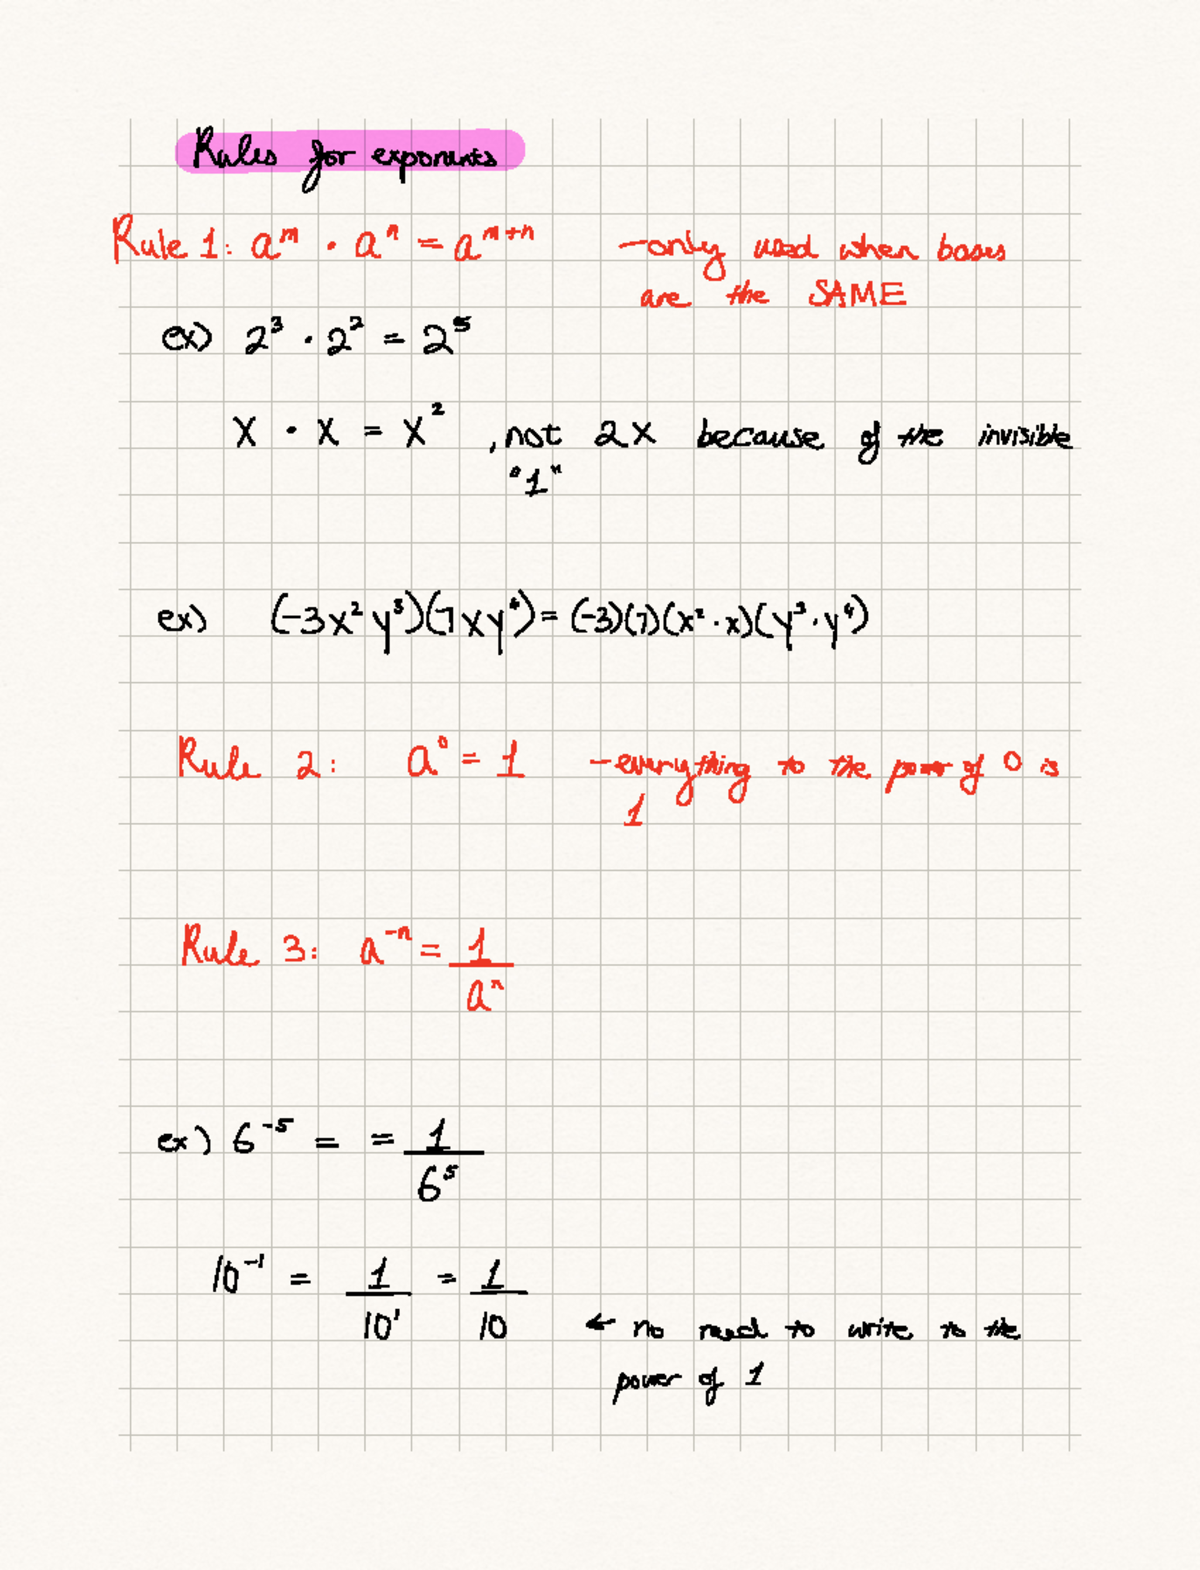 Rules for exponents
Rule 1: aᵐ · aⁿ = aᵐ⁺ⁿ -only used when bases
are the SAME
ex) 2³ · 2² = 2⁵
x · x = x² , not 2x because of the invisible
"1"
ex) (-3x²y³)(7xy⁴) = (-3)(7)(x² · x)(y³ · y⁴)
Rule 2: a⁰ = 1 -everything to the power of 0 is
1
Rule 3: a⁻ⁿ = 1/aⁿ
ex) 6⁻⁵ = = 1/6⁵
10⁻¹ = 1/10¹ = 1/10 ← no need to write to the
power of 1